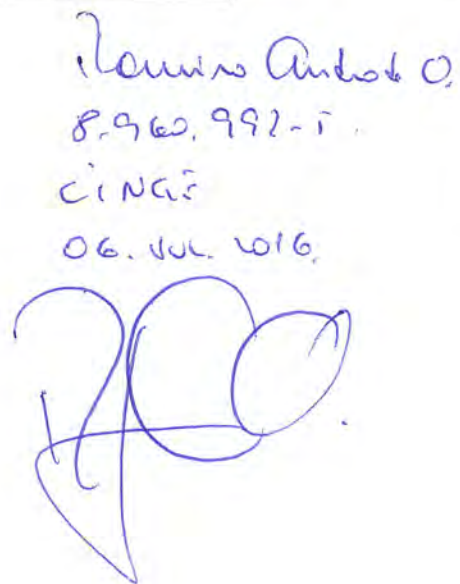 Ramiro Andrade O.
8.960.992-5.
CINGE
06. JUL. 2016.